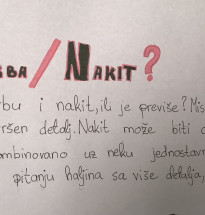 BA / NAKIT?
bu i nakit, ili je previše? Mis
ršen detalj. Nakit može biti
ombinovano uz neku jednostavn
pitanju haljina sa više detalja,